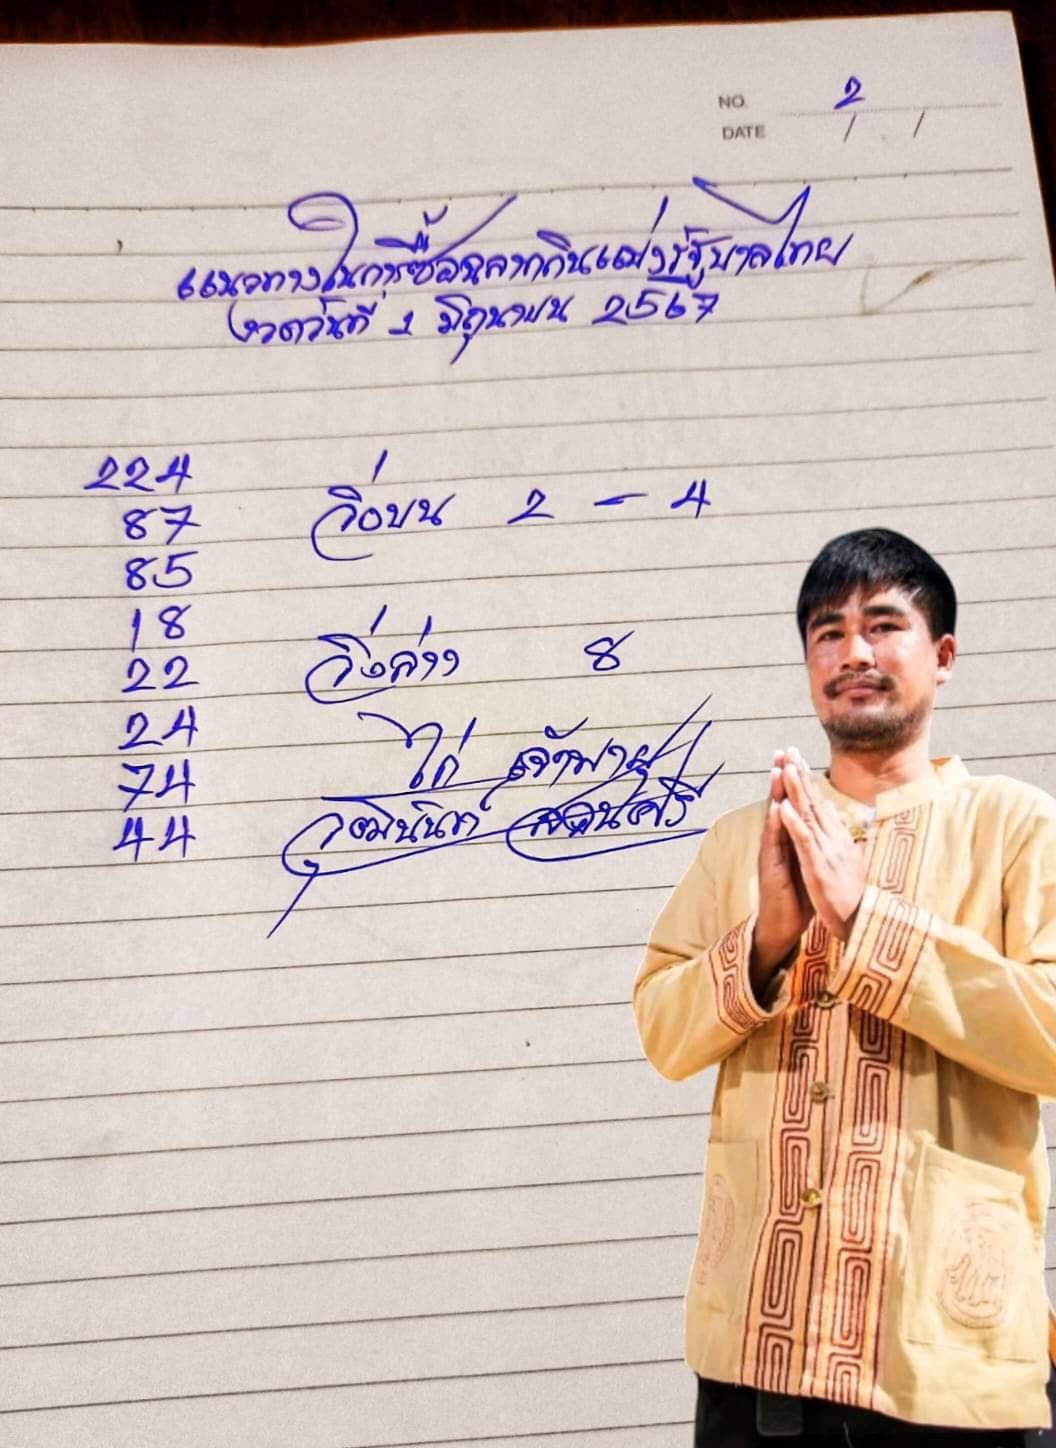 NO. 2
DATE / /
แนวทางในการซื้อฉลากกินแบ่งรัฐบาลไทย
งวดวันที่ 1 มิถุนายน 2567
224
87
วิ่งบน 2 - 4
85
18
22
วิ่งล่าง 8
24
74
ไก่
44